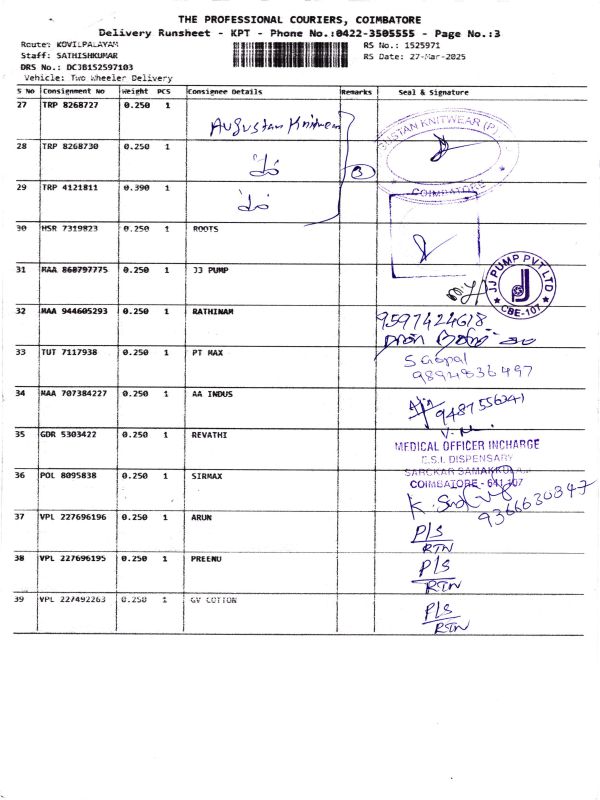 THE PROFESSIONAL COURIERS, COIMBATORE
Delivery Runsheet - KPT - Phone No.:0422-3505555 - Page No.:3
Route: KOVILPALAYAM RS No.: 1525971
Staff: SATHISHKUMAR RS Date: 27-Mar-2025
DRS No.: DCJB152597103
Vehicle: Two Wheeler Delivery
S No Consignment No Weight PCS Consignee Details Remarks Seal & Signature
27 TRP 8268727 0.250 1 Augustan Knitwear
28 TRP 8268730 0.250 1
29 TRP 4121811 0.390 1
3
KNITWEAR (P)
COIMBATORE
30 HSR 7319823 0.250 1 ROOTS
31 MAA 860797775 0.250 1 JJ PUMP
JJ PUMP PVT LTD
CBE-107
32 MAA 944605293 0.250 1 RATHINAM 9597424618
33 TUT 7117938 0.250 1 PT MAX S Gopal
9894836497
34 MAA 707384227 0.250 1 AA INDUS
35 GDR 5303422 0.250 1 REVATHI
MEDICAL OFFICER INCHARGE
E.S.I. DISPENSARY
COIMBATORE - 641 107
36 POL 8095838 0.250 1 SIRMAX
9366630347
37 VPL 227696196 0.250 1 ARUN P/S
RTN
38 VPL 227696195 0.250 1 PREENU P/S
RTN
39 VPL 227492263 0.250 1 GV COTTON P/S
RTN